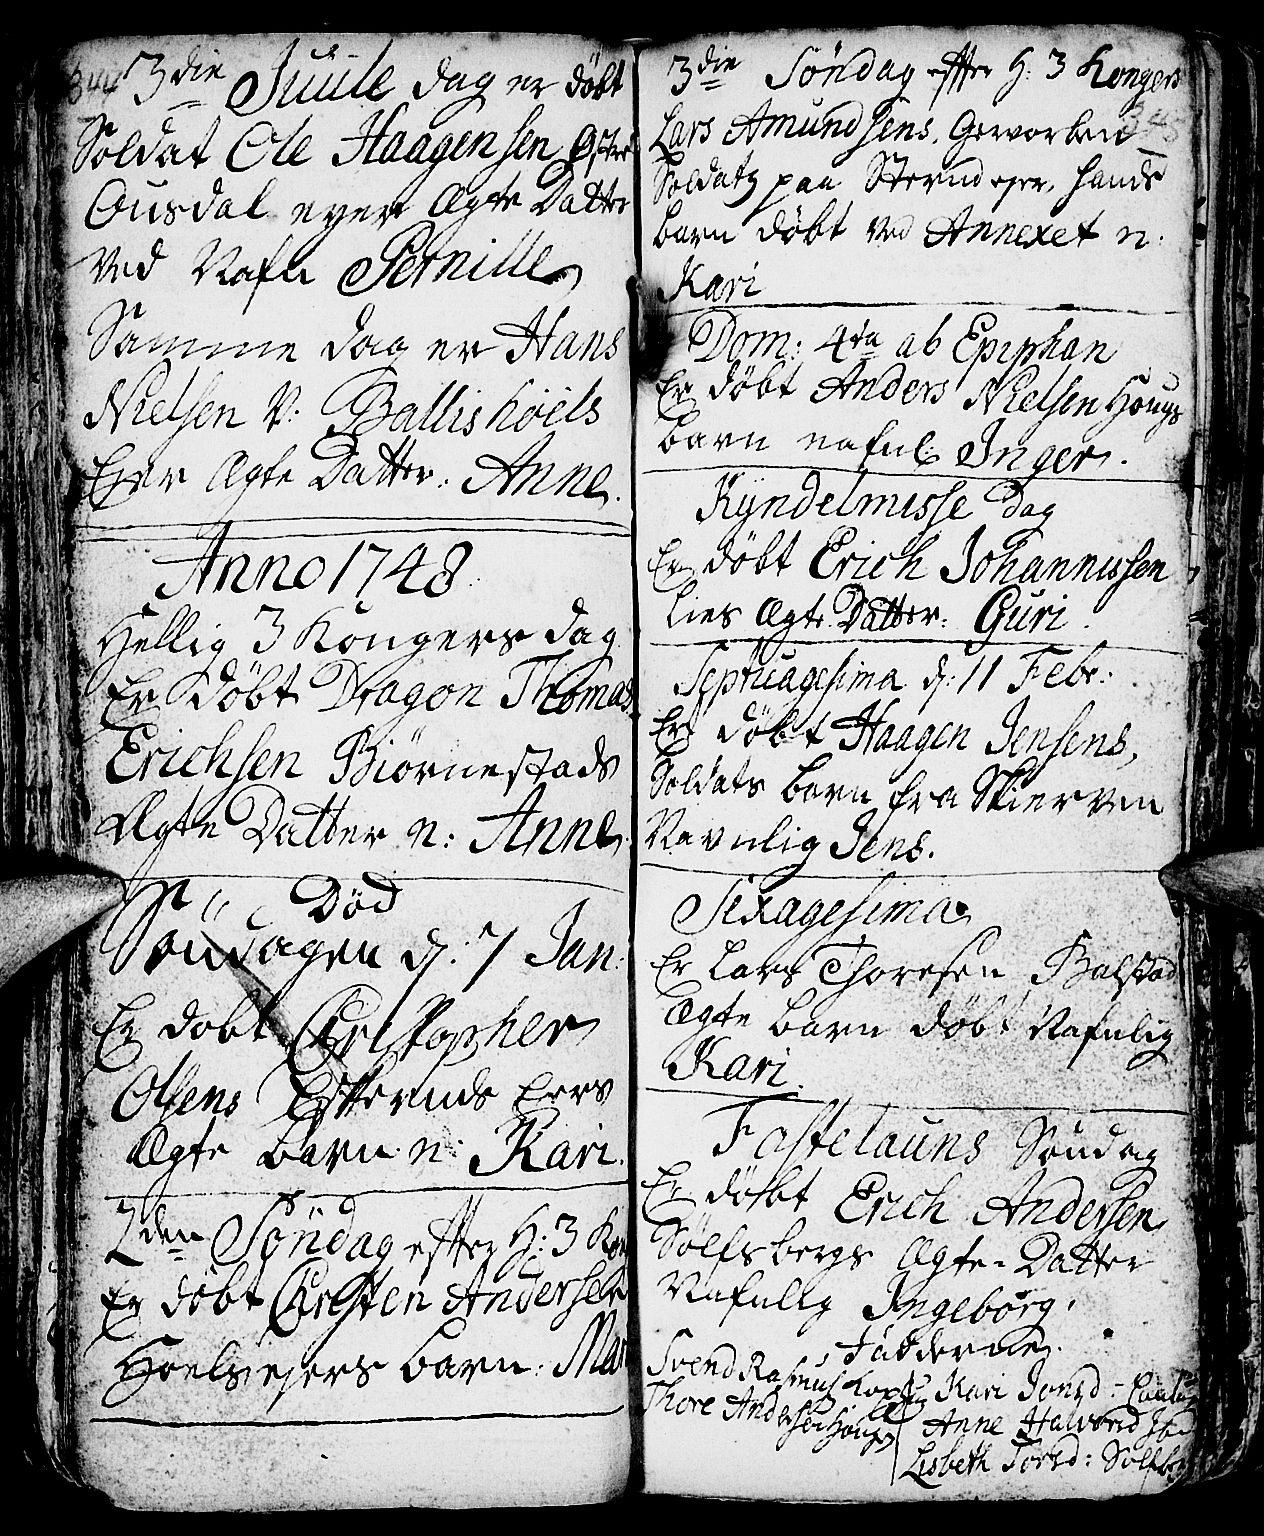 344 3die Juule dag er døbt
Soldat Ole Haagensen
Ousdal eyer Ægte Datter
ved Nafn Pernille
Samme dag er Hans
Nielsen V: Ballishöels
Ejer Ægte Datter. Anne.
Anno 1748.
Hellig 3 Kongers dag
Er døbt Dragon Thomas
Erichsen Biørnestads
Ægte Datter n: Anne.
Död
Søndagen d: 7 Jan:
Er døbt Christopher
Olsens Eers
Ægte barn n: Kari.
2den Søndag effter H: 3 Kon
Er døbt Christen Andersen
barn: Mar
3die Söndag effter H: 3 Kongers
Lars Amundsens. Gevorben
Soldatz paa hands
barn døbt ved Annexet n:
Kari
Dom: 4ta ab Epiphan
Er döbt Anders Nielsen Hougs
barn nafnl Inger.
Kyndelmisse Dag
Er døbt Erich Johannissen
Lies Ægte Datter: Guri.
Septuagesima d: 11 Febr:
Er døbt Haagen Jensens,
Soldats barn fra Skierven
Navnlig Jens.
Sexagesima
Er Lars Thoresen Balstad
Ægte barn døbt Nafnlig
Kari.
Fastelauns Søndag
Er døbt Erich Andersen
Sølfsbergs Ægte-Datter
Nafnlig Ingeborg.
Fadderne.
Svend Rasmus
Thore Andersen Hougen
Kari Jonsd:
Anne Halvorsd
Lisbeth Torsd: Sølfsb